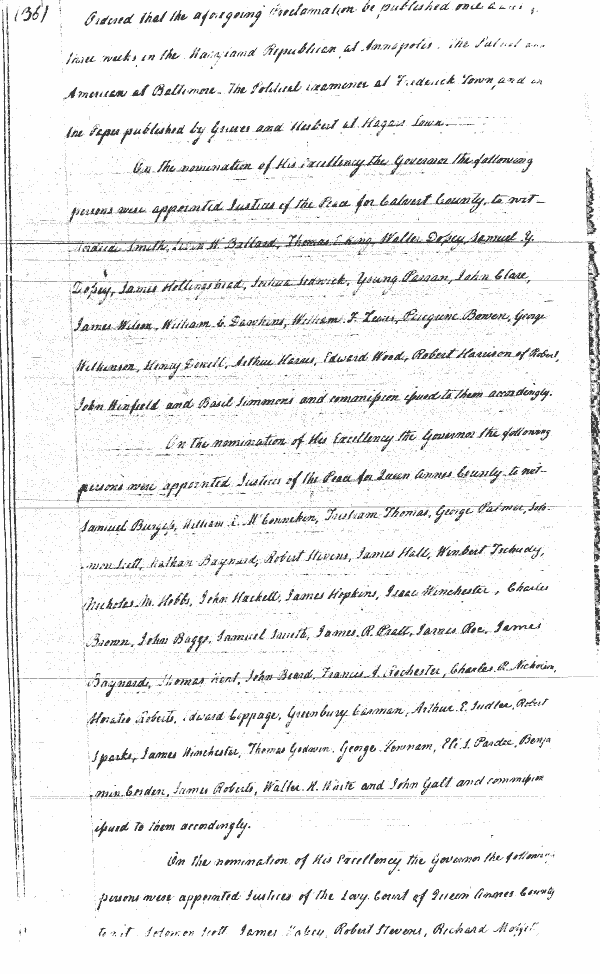 (36)
Ordered that the aforegoing Proclamation be published once
three weeks in the Maryland Republican at Annapolis. The Patriot and
American at Baltimore. The Political examiner at Frederick Town, and in
the Paper published by Grieves and Herbert at Hagars Town.
On the nomination of His Excellency the Governor the following
persons were appointed Justices of the Peace for Calvert County, to wit-
Smith, Ballard, Thomas King, Walter Dossey, Samuel Y.
Dossey, James Hollingshead, Joshua Sedwick, Young Parran, John Clare,
James Wilson, William C. Dawkins, William F. Lewis, Peregrine Bowen, George
Wilkinson, Henry Sewell, Arthur Harris, Edward Wood, Robert Harrison of Robert,
John Winfield and Basil Simmons and commission issued to them accordingly.
On the nomination of His Excellency the Governor the following
persons were appointed Justices of the Peace for Queen Annes County to wit-
Samuel Burgess, William E. McConneken, Tristram Thomas, George Palmer, Solo-
-mon Scott, Nathan Baynard, Robert Stevens, James Hall, Winbert Tschudy,
Nicholas M. Hobbs, John Hackett, James Hopkins, Isaac Winchester, Charles
Brown, John Baggs, Samuel Smith, James R. Pratt, James Roe, James
Baynard, Thomas Kent, John Beard, Francis J. Rochester, Charles R. Nicholson,
Horatio Roberts, Edward Coppage, Greenbury Carman, Arthur E. Sudler, Robert
Sparks, James Winchester, Thomas Godwin, George Newnam, Eli S. Pardee, Benja
-min Corden, James Roberts, Walter H. and John Galt and commission
issued to them accordingly.
On the nomination of His Excellency the Governor the following
persons were appointed Justices of the Levy Court of Queen Annes County
to wit Solomon Scott James Robert Stevens, Richard